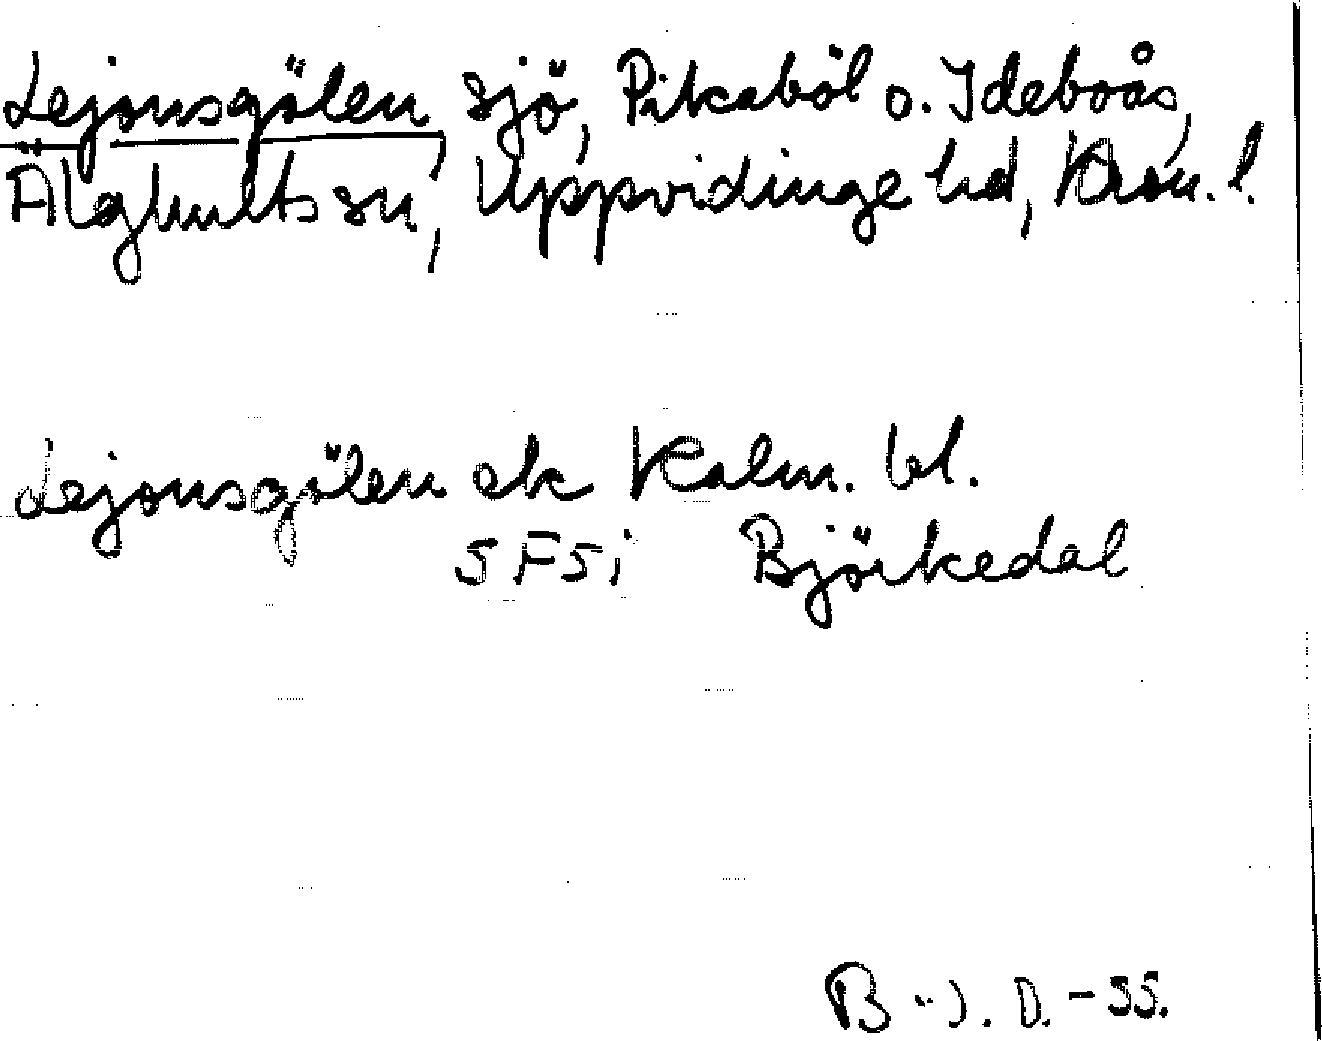 Lejonsgölen, sjö, Pikaböl o. Ideboås,
Älghults sn, Uppvidinge hd, Kron. l.
Lejonsgölen ek Kalm. bl.
SFSi Björkedal
B